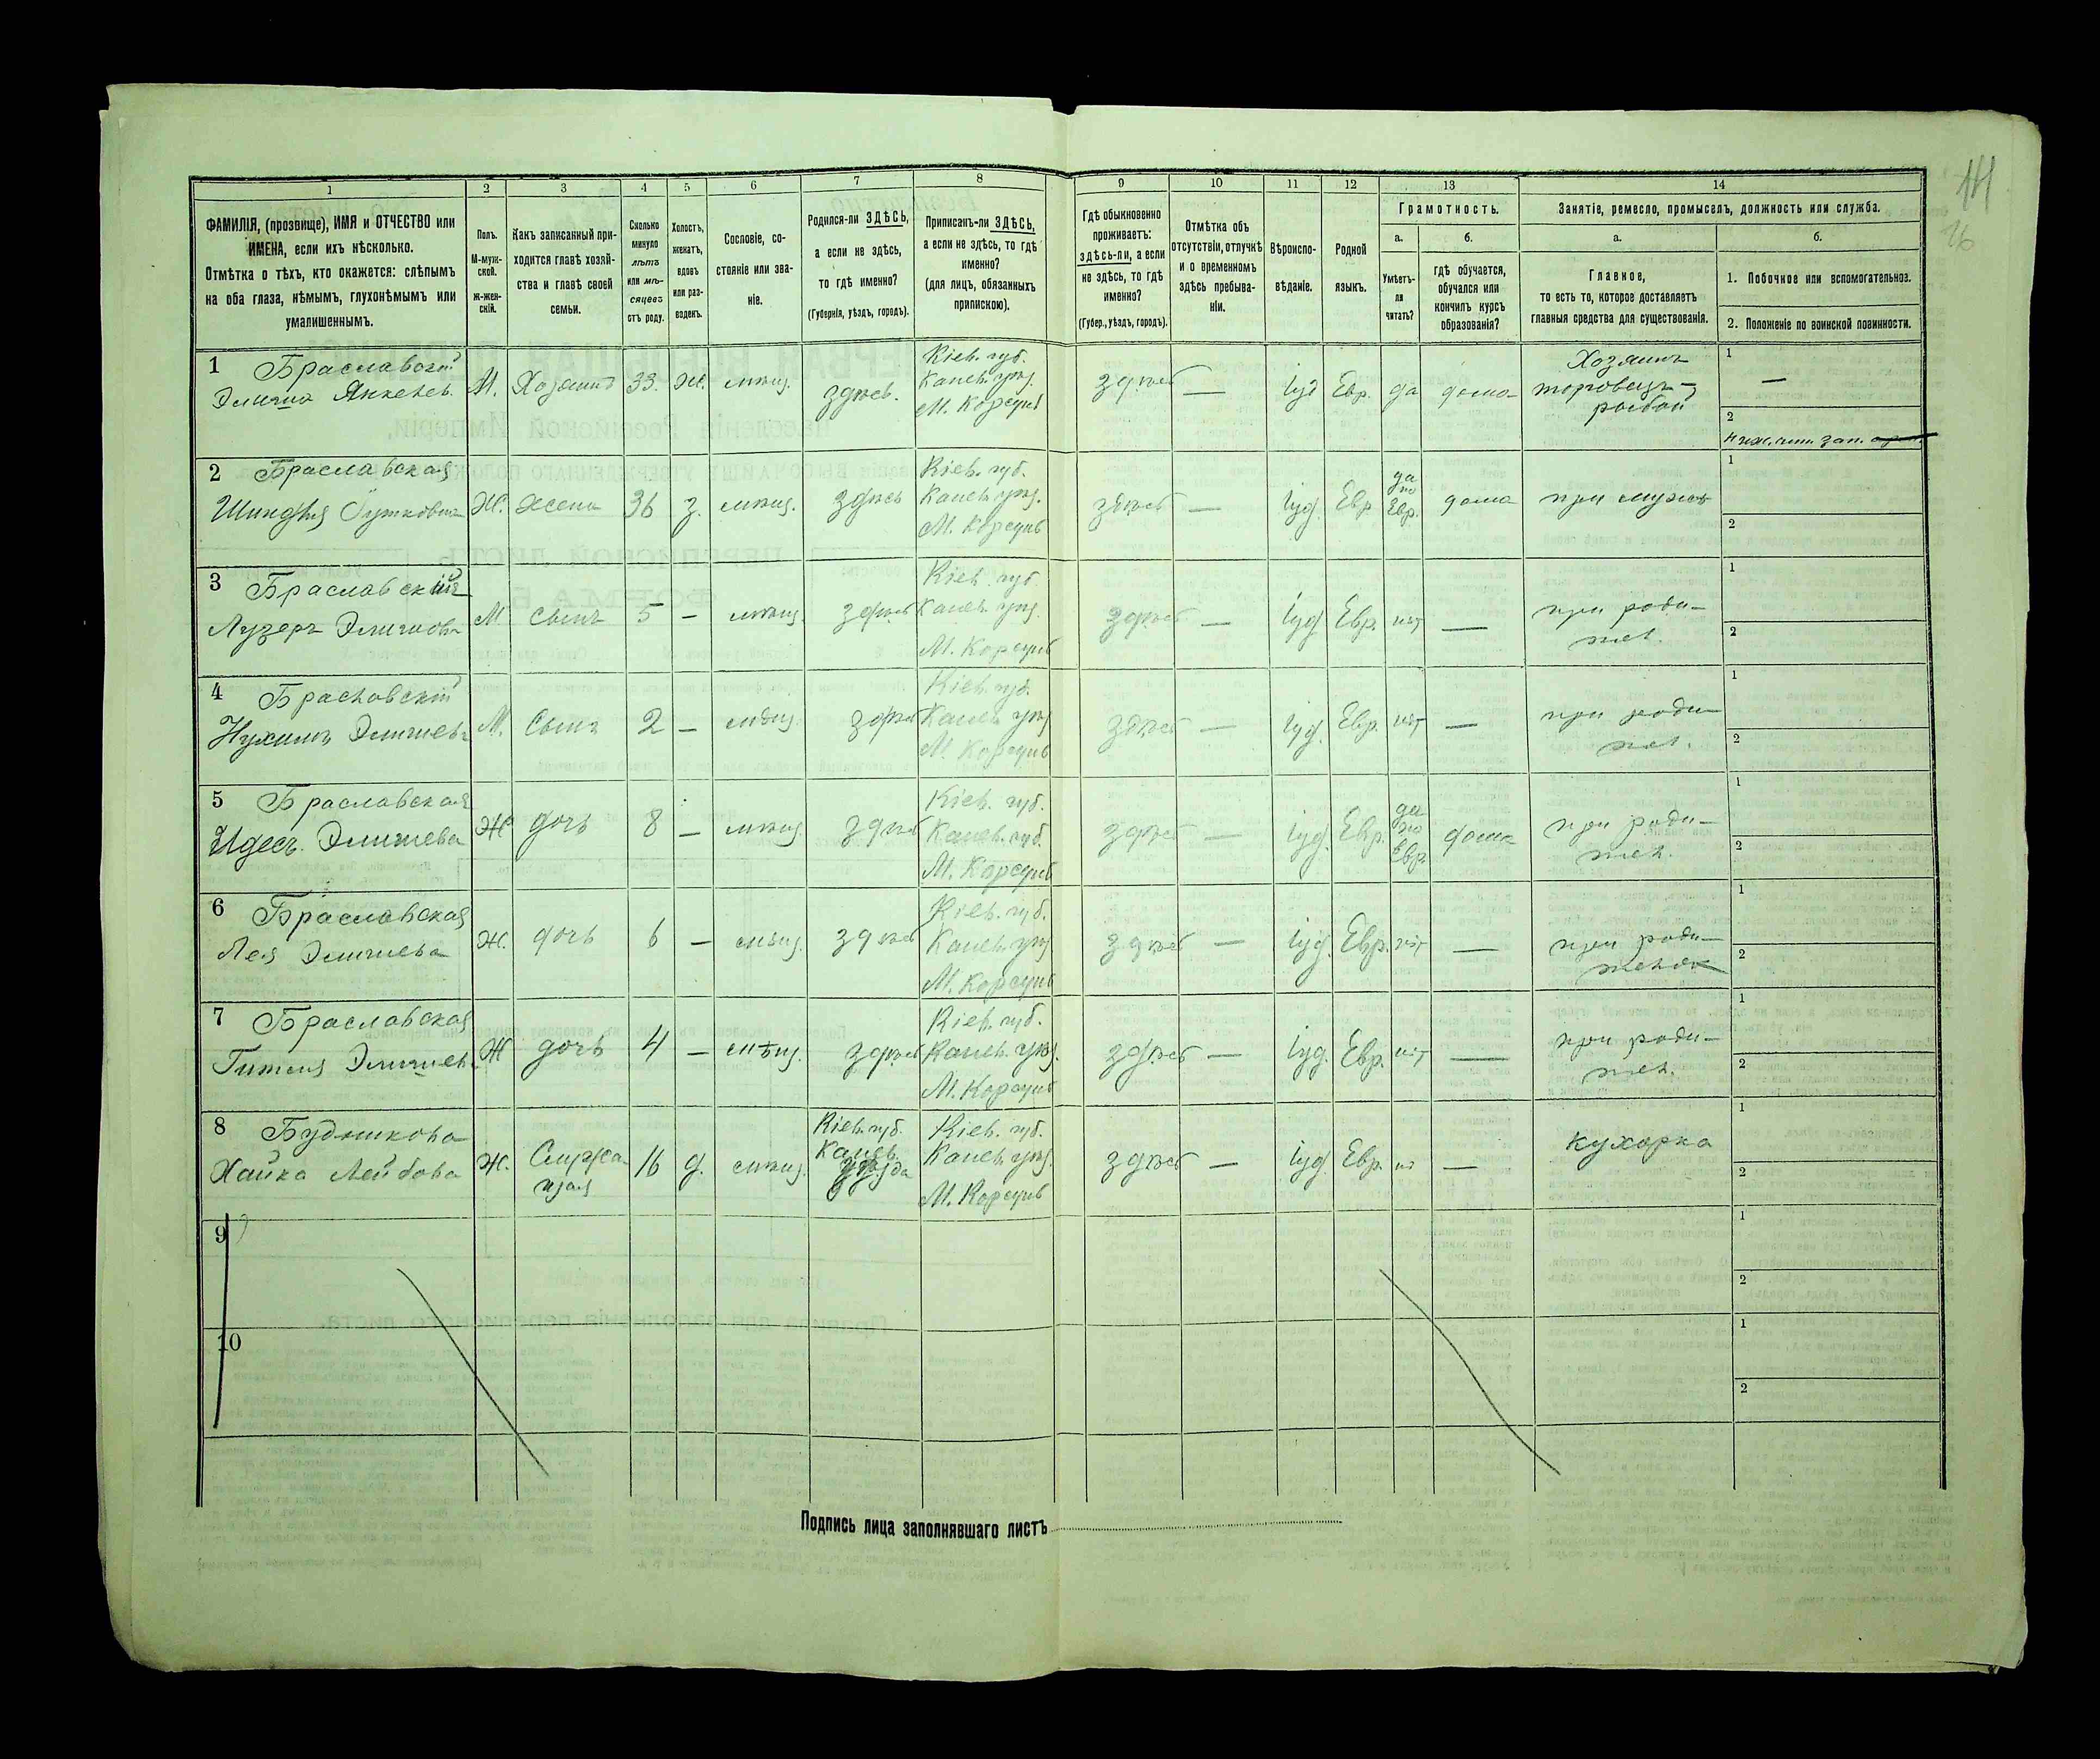 1
2
3
4
5
6
7
8
9
10
11
12
13
14
ФАМИЛІЯ, (прозвище), ИМЯ и ОТЧЕСТВО или
ИМЕНА, если ихъ нѣсколько.
Отмѣтка о тѣхъ, кто окажется: слѣпымъ
на оба глаза, нѣмымъ, глухонѣмымъ или
умалишеннымъ.
Полъ.
М-муж-
ской.
Ж-жен-
скій.
Какъ записанный при-
ходится главѣ хозяй-
ства и главѣ своей
семьи.
Сколько
минуло
лѣтъ
или мѣ-
сяцевъ
отъ роду.
Холостъ,
женатъ,
вдовъ
или раз-
веденъ.
Сословіе, со-
стояніе или зва-
ніе.
Родился-ли ЗДѢСЬ,
а если не здѣсь,
то гдѣ именно?
(Губернія, уѣздъ, городъ).
Приписанъ-ли ЗДѢСЬ,
а если не здѣсь, то гдѣ
именно?
(для лицъ, обязанныхъ
припискою).
Гдѣ обыкновенно
проживаетъ:
здѣсь-ли, а если
не здѣсь, то гдѣ
именно?
(Губер., уѣздъ, городъ).
Отмѣтка объ
отсутствіи, отлучкѣ
и о временномъ
здѣсь пребыва-
ніи.
Вѣроиспо-
вѣданіе.
Родной
языкъ.
Грамотность.
а.
Умѣетъ-
ли
читать?
б.
гдѣ обучается,
обучался или
кончилъ курсъ
образованія?
Занятіе, ремесло, промыселъ, должность или служба.
а.
Главное,
то есть то, которое доставляетъ
главныя средства для существованія.
б.
1. Побочное или вспомогательное.
2. Положеніе по воинской повинности.
1 Браславскій
М. Хозяинъ 33. ж. мѣщ. здѣсь.
Кіев. губ.
Канев. уѣз.
М. Корсунь
здѣсь — Іуд Евр. да дома
Хозяинъ
торговецъ
рыбой
1 —
2
2 Браславская
Ж. жена 36 з. мѣщ. здѣсь
Кіев. губ.
Канев. уѣз.
М. Корсунь
здѣсь — Іуд. Евр
да
по
Евр.
дома при мужѣ
1
2
3 Браславскій
М сынъ 5 — мѣщ. здѣсь
Кіев. губ.
Канев. уѣз.
М. Корсунь
здѣсь — Іуд Евр. нѣт —
при роди-
тел.
1
2
4 Браславскій
М. Сынъ 2 — мѣщ. здѣсь
Кіев. губ.
Канев. уѣз
М. Корсунь
здѣсь — Іуд. Евр. нѣт —
при роди-
тел.
1
2
5 Браславская
Идесь
Ж дочь 8 — мѣщ. здѣсь
Кіев. губ.
Канев. губ.
М. Корсунь
здѣсь — Іуд. Евр.
да
по
Евр.
дома
при роди-
тел.
1
2
6 Браславская
Лея
Ж. дочь 6 — мѣщ. здѣсь
Кіев. губ.
Канев. уѣз
М. Корсунь
здѣсь — Іуд. Евр. нѣт —
при роди-
1
2
7 Браславская
Ж дочь 4 — мѣщ. здѣсь
Кіев. губ.
Канев. уѣз.
М. Корсунь
здѣсь — Іуд. Евр. нѣт —
при роди-
тел.
1
2
8 Будникова
Хайка Лейбова
Ж. 16 д. мѣщ.
Кіев. губ.
Канев.
Кіев. губ.
Канев. уѣз.
М. Корсунь
здѣсь — Іуд. Евр. —
Кухарка
1
2
9
1
2
10
1
2
Подпись лица заполнявшаго листъ